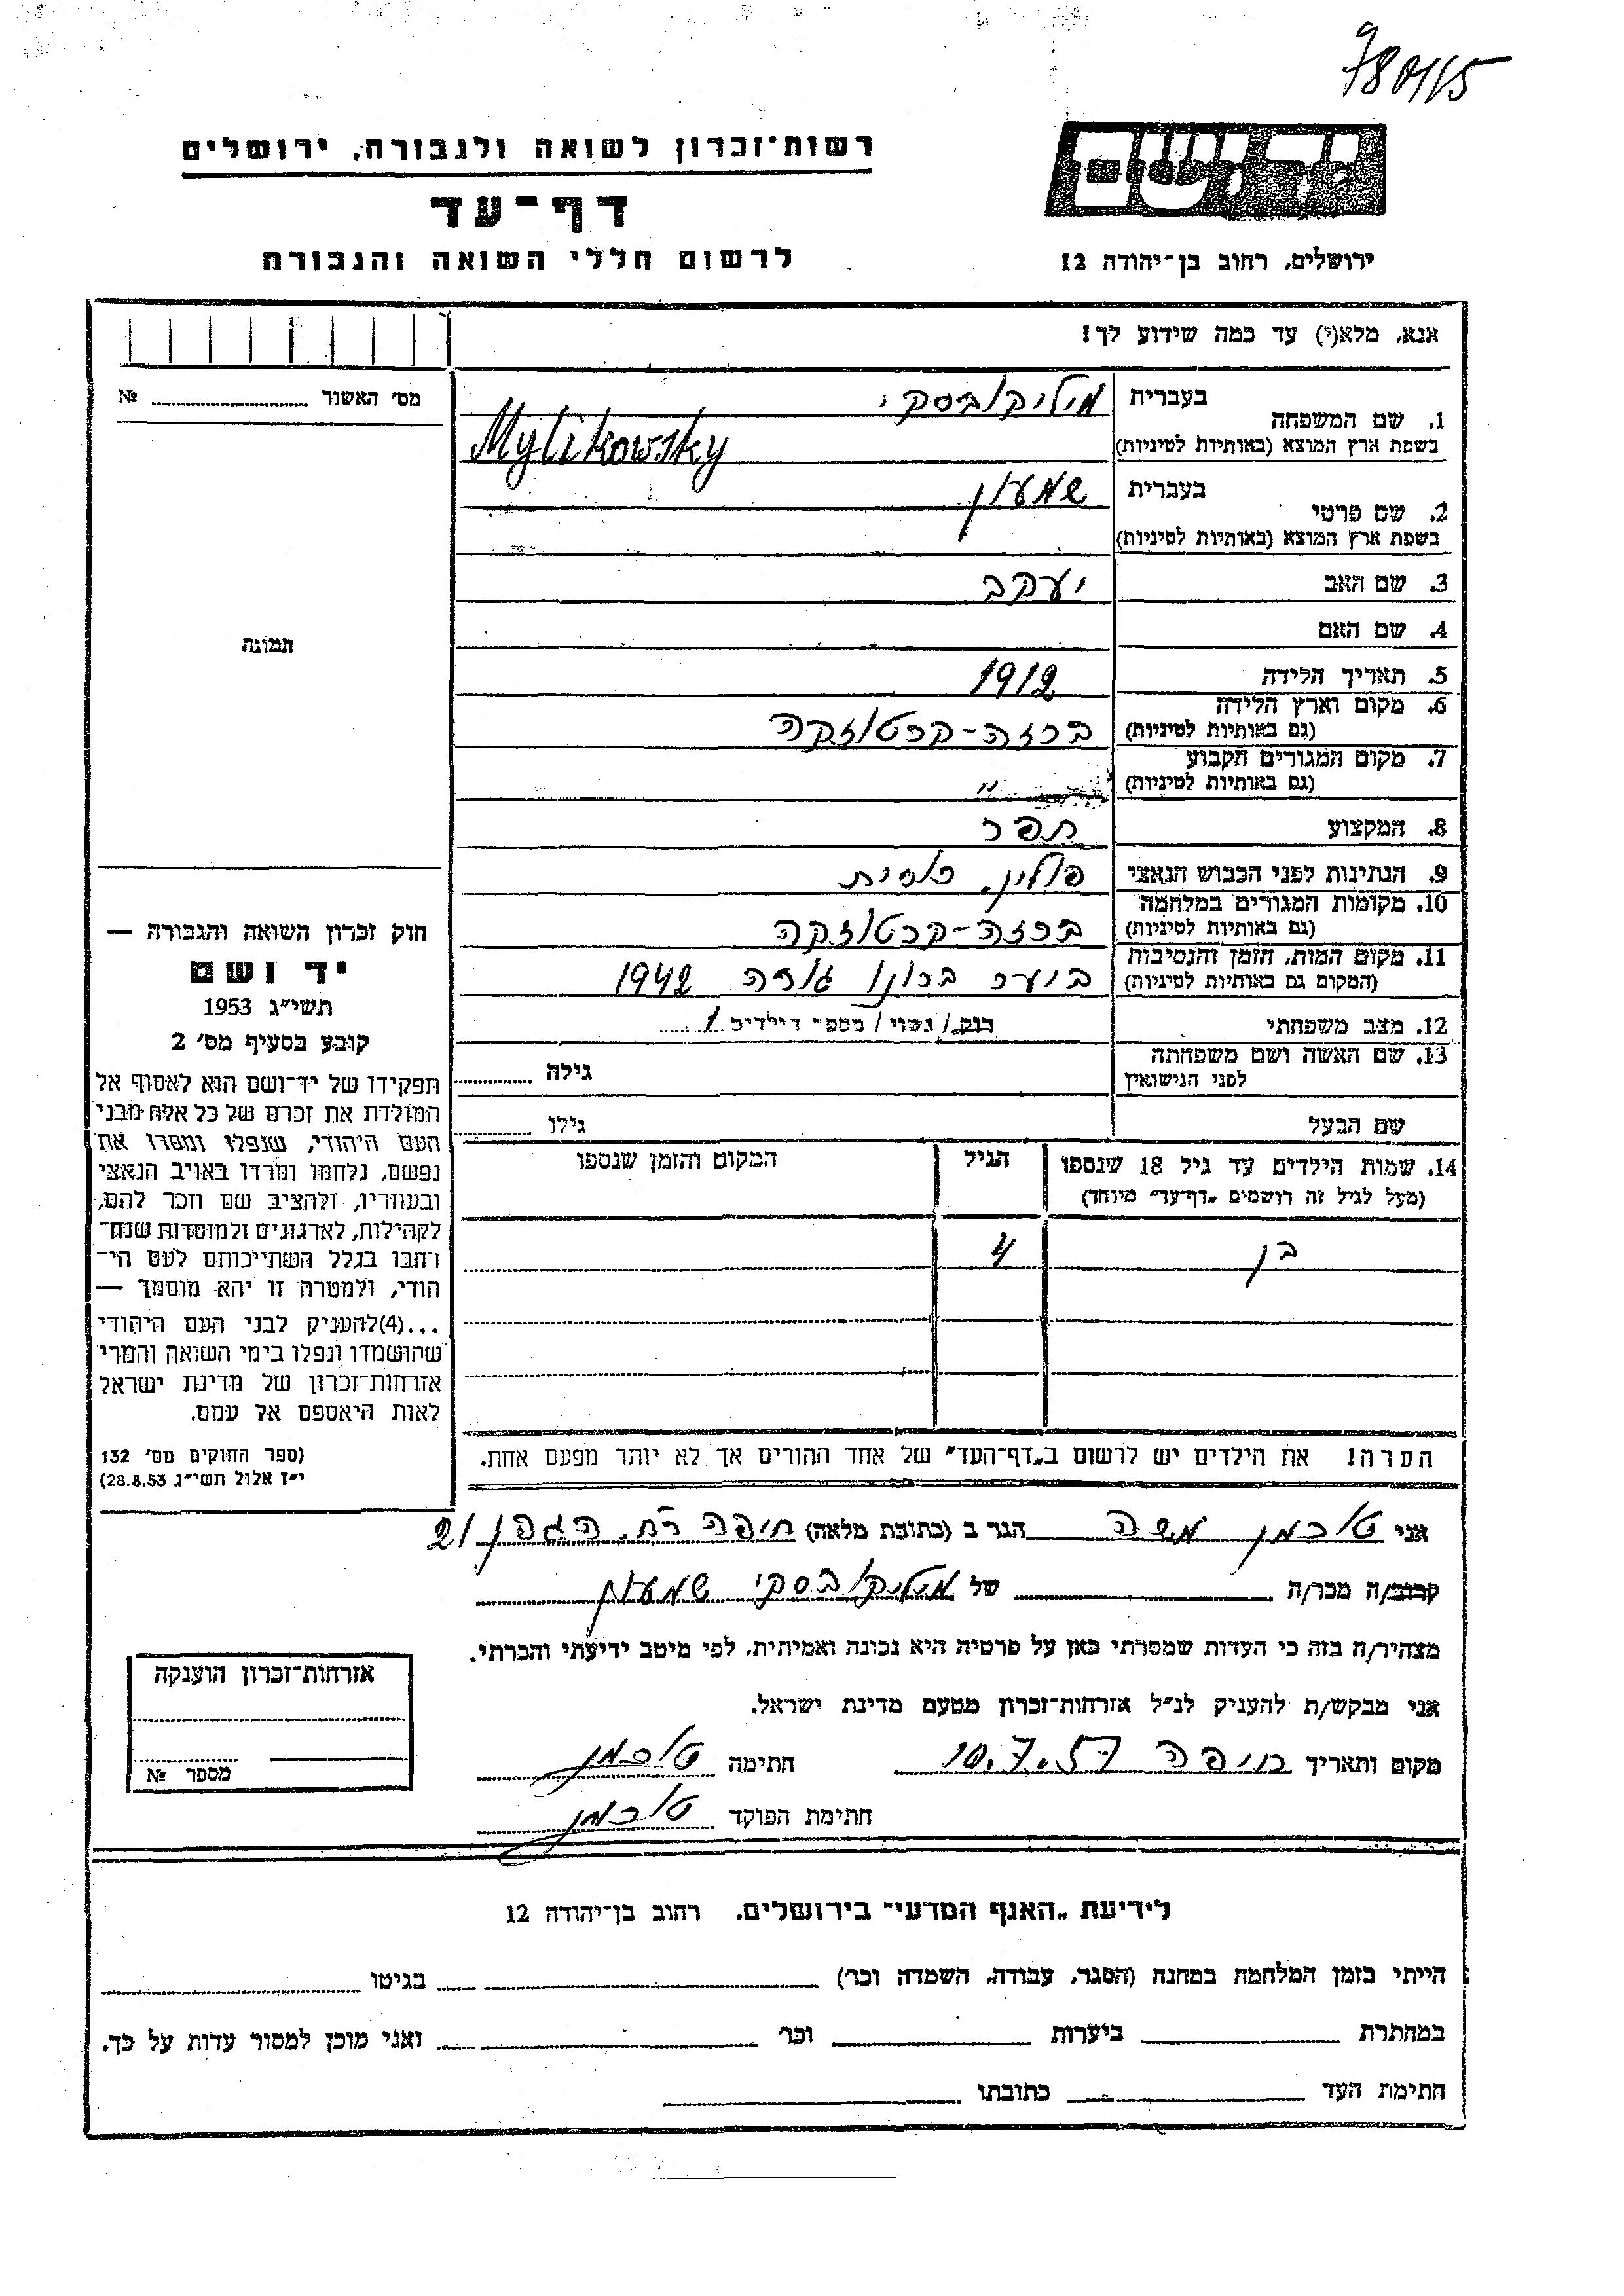 780/15
ידושם
רשות־זכרון לשואה ולגבורה, ירושלים
דף־עד
לרשום חללי השואה והגבורה
ירושלים, רחוב בן־יהודה 12
אנא, מלא(י) עד כמה שידוע לך!
מס׳ האשור № 
1. שם המשפחה בעברית מיליקובסקי
בשפת ארץ המוצא (באותיות לטיניות) Mylikowsky
2. שם פרטי בעברית שמעון
בשפת ארץ המוצא (באותיות לטיניות)
3. שם האב יעקב
4. שם האם
5. תאריך הלידה 1912
6. מקום וארץ הלידה (גם באותיות לטיניות) ברזה-קרטוזקה
7. מקום המגורים הקבוע (גם באותיות לטיניות) "
8. המקצוע תפר
9. הנתינות לפני הכבוש הנאצי פולין,
10. מקומות המגורים במלחמה (גם באותיות לטיניות) ברזה-קרטוזקה
11. מקום המות, הזמן והנסיבות (המקום גם באותיות לטיניות) ביער ברונו גורה 1942
12. מצב משפחתי רווק/נשוי/מספר הילדים 1
13. שם האשה ושם משפחתה לפני הנישואין גילה
שם הבעל גילו
14. שמות הילדים עד גיל 18 שנספו הגיל המקום והזמן שנספו
(מעל לגיל זה רושמים „דף־עד" מיוחד)
בן 4
הערה! את הילדים יש לרשום ב„דף־העד" של אחד ההורים אך לא יותר מפעם אחת.
תמונה
חוק זכרון השואה והגבורה —
יד ושם
תשי״ג 1953
קובע בסעיף מס׳ 2
תפקידו של יד־ושם הוא לאסוף אל
המולדת את זכרם של כל אלה מבני
העם היהודי, שנפלו ומסרו את
נפשם, נלחמו ומרדו באויב הנאצי
ובעוזריו, ולהציב שם וזכר להם,
לקהילות, לארגונים ולמוסדות שנח־
רבו בגלל השתייכותם לעם הי־
הודי, ולמטרה זו יהא מוסמך —
...(4)להעניק לבני העם היהודי
שהושמדו ונפלו בימי השואה והמרי
אזרחות־זכרון של מדינת ישראל
לאות היאספם אל עמם.
(ספר החוקים מס׳ 132
י״ז אלול תשי״ג 28.8.53)
אני טוכמן משה הגר ב (כתובת מלאה) חיפה רח. הגפן 21
קרוב/ה מכר/ה של מיליקובסקי שמעון
מצהיר/ה בזה כי העדות שמסרתי כאן על פרטיה היא נכונה ואמיתית, לפי מיטב ידיעתי והכרתי.
אני מבקש/ת להעניק לנ״ל אזרחות־זכרון מטעם מדינת ישראל.
מקום ותאריך חיפה 10.7.57 חתימה טוכמן
חתימת הפוקד טוכמן
אזרחות־זכרון הוענקה
מספר №
לידיעת „האגף המדעי" בירושלים, רחוב בן־יהודה 12
הייתי בזמן המלחמה במחנה (הסגר, עבודה, השמדה וכר׳) בגיטו
במחתרת ביערות וכר׳ ואני מוכן למסור עדות על כך.
חתימת העד כתובתו